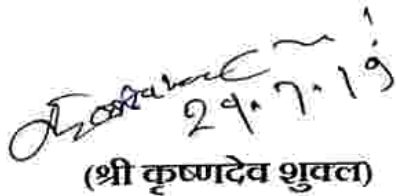 29.7.19
(श्री कृष्णदेव शुक्ल)